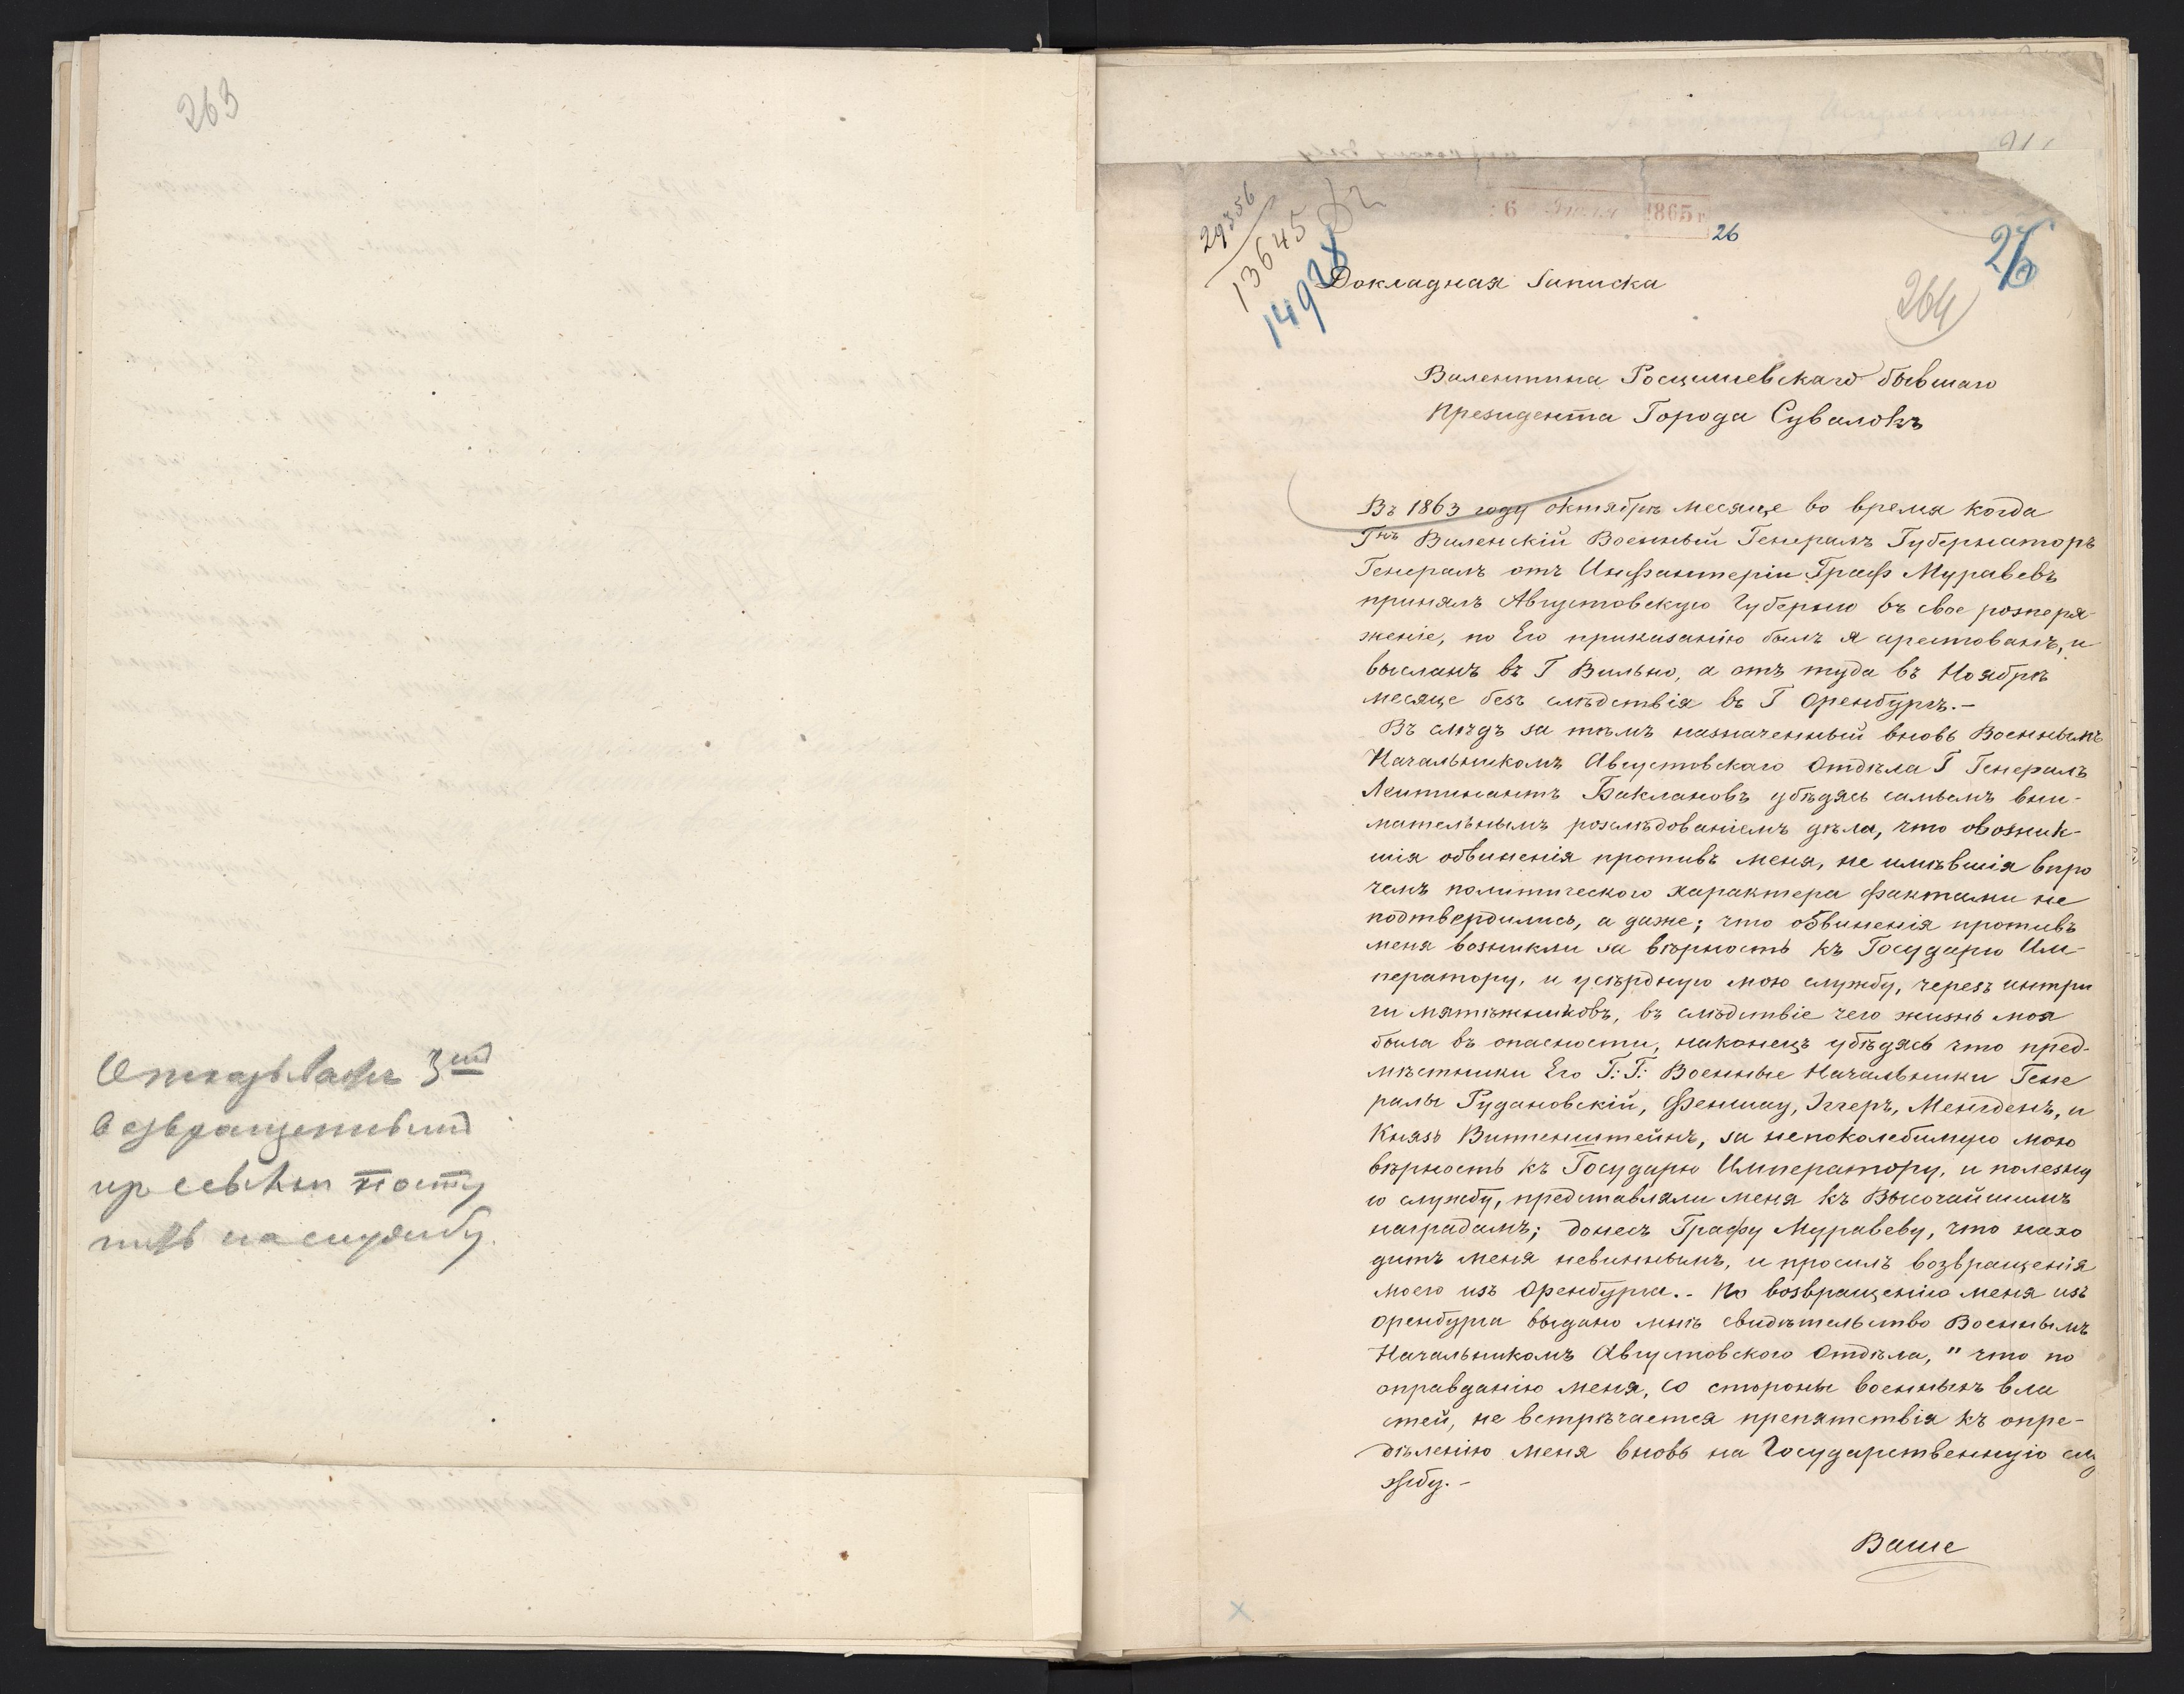 263
возвращенный
посту
пить на службу.
29356
13645
1865 г
26
26
264
Докладная Записка
Валентина Росцишевскаго бывшаго
Президента Города Сувалокъ
Въ 1863 году октябрѣ месяце во время когда
Гнъ Виленскій Военный Генералъ Губернаторъ
Генералъ отъ Инфантеріи Графъ Муравьевъ
принялъ Августовскую Губернію въ свое розперя-
женіе, по Его приказанію былъ я арестованъ, и
высланъ въ Г Вильно, а отъ туда въ Ноябрѣ
месяце безъ слѣдствія въ Г Оренбургъ.-
Въ слѣдъ за тѣмъ назначенный вновь Военнымъ
Начальникомъ Августовскаго Отдѣла Г Генералъ
Лейтинантъ Баклановъ убѣдясь самымъ вни-
мательнымъ розслѣдованіемъ дѣла, что овозник-
шія обвиненія противъ меня, не имѣвшія впро
чемъ политическаго характера фактами не
подтвердились, а даже; что обвиненія противъ
меня возникли за вѣрность къ Государю Им-
ператору, и усѣрдную мою службу, черезъ интри
ги мятѣжниковъ, въ слѣдствіе чего жизнь моя
была въ опасности, наконецъ убѣдясь что пред-
мѣстники Его Г:Г: Военные Начальники Гене
ралы Рудановскій, Феншау, Эггеръ, Менгденъ, и
Князь Витенштейнъ, за непоколебимую мою
вѣрность къ Государю Императору, и полезну
ю службу, представляли меня къ Высочайшимъ
наградамъ; донесъ Графу Муравеву, что нахо
дитъ меня невиннымъ, и просилъ возвращенія
моего изъ Оренбурга.- По возвращенію меня изъ
Оренбурга выдано мнѣ свидѣтельство Военнымъ
Начальникомъ Августовского Отдѣла, " что по
оправданію меня, со стороны военныхъ вла
стей, не встрѣчается препятствія къ опре-
дѣленію меня вновь на Государственную слу
жбу.-
Ваше